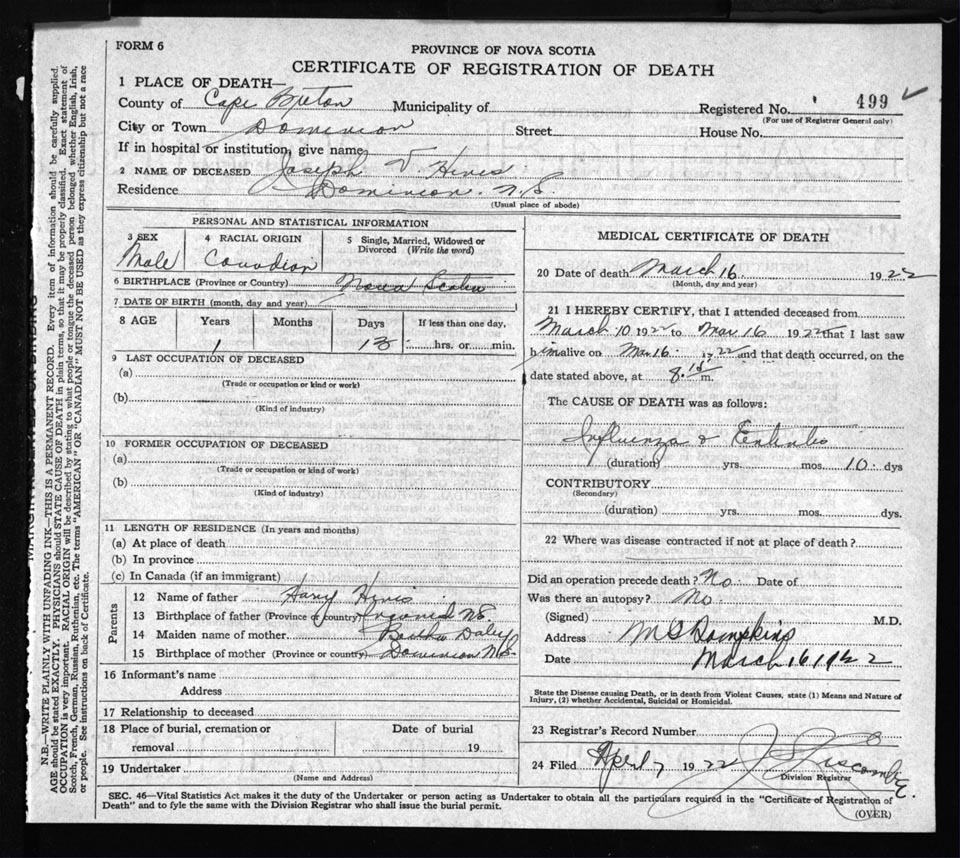 FORM 6
PROVINCE OF NOVA SCOTIA
CERTIFICATE OF REGISTRATION OF DEATH
1 PLACE OF DEATH—
County of Cape Breton Municipality of Registered No. 499
(For use of Registrar General only)
City or Town Dominion Street House No.
If in hospital or institution, give name
2 NAME OF DECEASED Joseph V. Hines
Residence Dominion. N.S.
(Usual place of abode)
PERSONAL AND STATISTICAL INFORMATION
3 SEX 4 RACIAL ORIGIN 5 Single, Married, Widowed or Divorced (Write the word)
Male Canadian
6 BIRTHPLACE (Province or Country) Nova Scotia
7 DATE OF BIRTH (month, day and year)
8 AGE Years Months Days If less than one day,
1 13 hrs. or min.
9 LAST OCCUPATION OF DECEASED
(a)
(Trade or occupation or kind or work)
(b)
(Kind of industry)
10 FORMER OCCUPATION OF DECEASED
(a)
(Trade or occupation or kind of work)
(b)
(Kind of industry)
11 LENGTH OF RESIDENCE (In years and months)
(a) At place of death
(b) In province
(c) In Canada (if an immigrant)
Parents
12 Name of father Harry Hines
13 Birthplace of father (Province or country) N.S.
14 Maiden name of mother Bertha Daley
15 Birthplace of mother (Province or country) Dominion N.S.
16 Informant's name
Address
17 Relationship to deceased
18 Place of burial, cremation or removal Date of burial
19
19 Undertaker
(Name and Address)
MEDICAL CERTIFICATE OF DEATH
20 Date of death March 16 1922
(Month, day and year)
21 I HEREBY CERTIFY, that I attended deceased from
March 10 1922 to Mar. 16 1922 that I last saw
him alive on Mar 16 1922 and that death occurred, on the
date stated above, at 8.15 m.
The CAUSE OF DEATH was as follows:
Influenza &
(duration) yrs. mos. 10 dys
CONTRIBUTORY
(Secondary)
(duration) yrs. mos. dys.
22 Where was disease contracted if not at place of death?
Did an operation precede death? No Date of
Was there an autopsy? No
(Signed) M.D.
Address
Date March 16 1922
State the Disease causing Death, or in death from Violent Causes, state (1) Means and Nature of
Injury, (2) whether Accidental, Suicidal or Homicidal.
23 Registrar's Record Number
24 Filed April 7 1922
Division Registrar
SEC. 46—Vital Statistics Act makes it the duty of the Undertaker or person acting as Undertaker to obtain all the particulars required in the "Certificate of Registration of
Death" and to fyle the same with the Division Registrar who shall issue the burial permit.
(OVER)
N.B.—WRITE PLAINLY WITH UNFADING INK—THIS IS A PERMANENT RECORD. Every item of information should be carefully supplied.
AGE should be stated EXACTLY. PHYSICIANS should STATE CAUSE OF DEATH in plain terms, so that it may be properly classified. Exact statement of
OCCUPATION is very important. RACIAL ORIGIN will be described by stating to what people or tongue the deceased person belonged whether English, Irish,
Scotch, French, German, Russian, Ruthenian, etc. The terms "AMERICAN" OR "CANADIAN" MUST NOT BE USED as they express citizenship but not a race
or people. See instructions on back of Certificate.